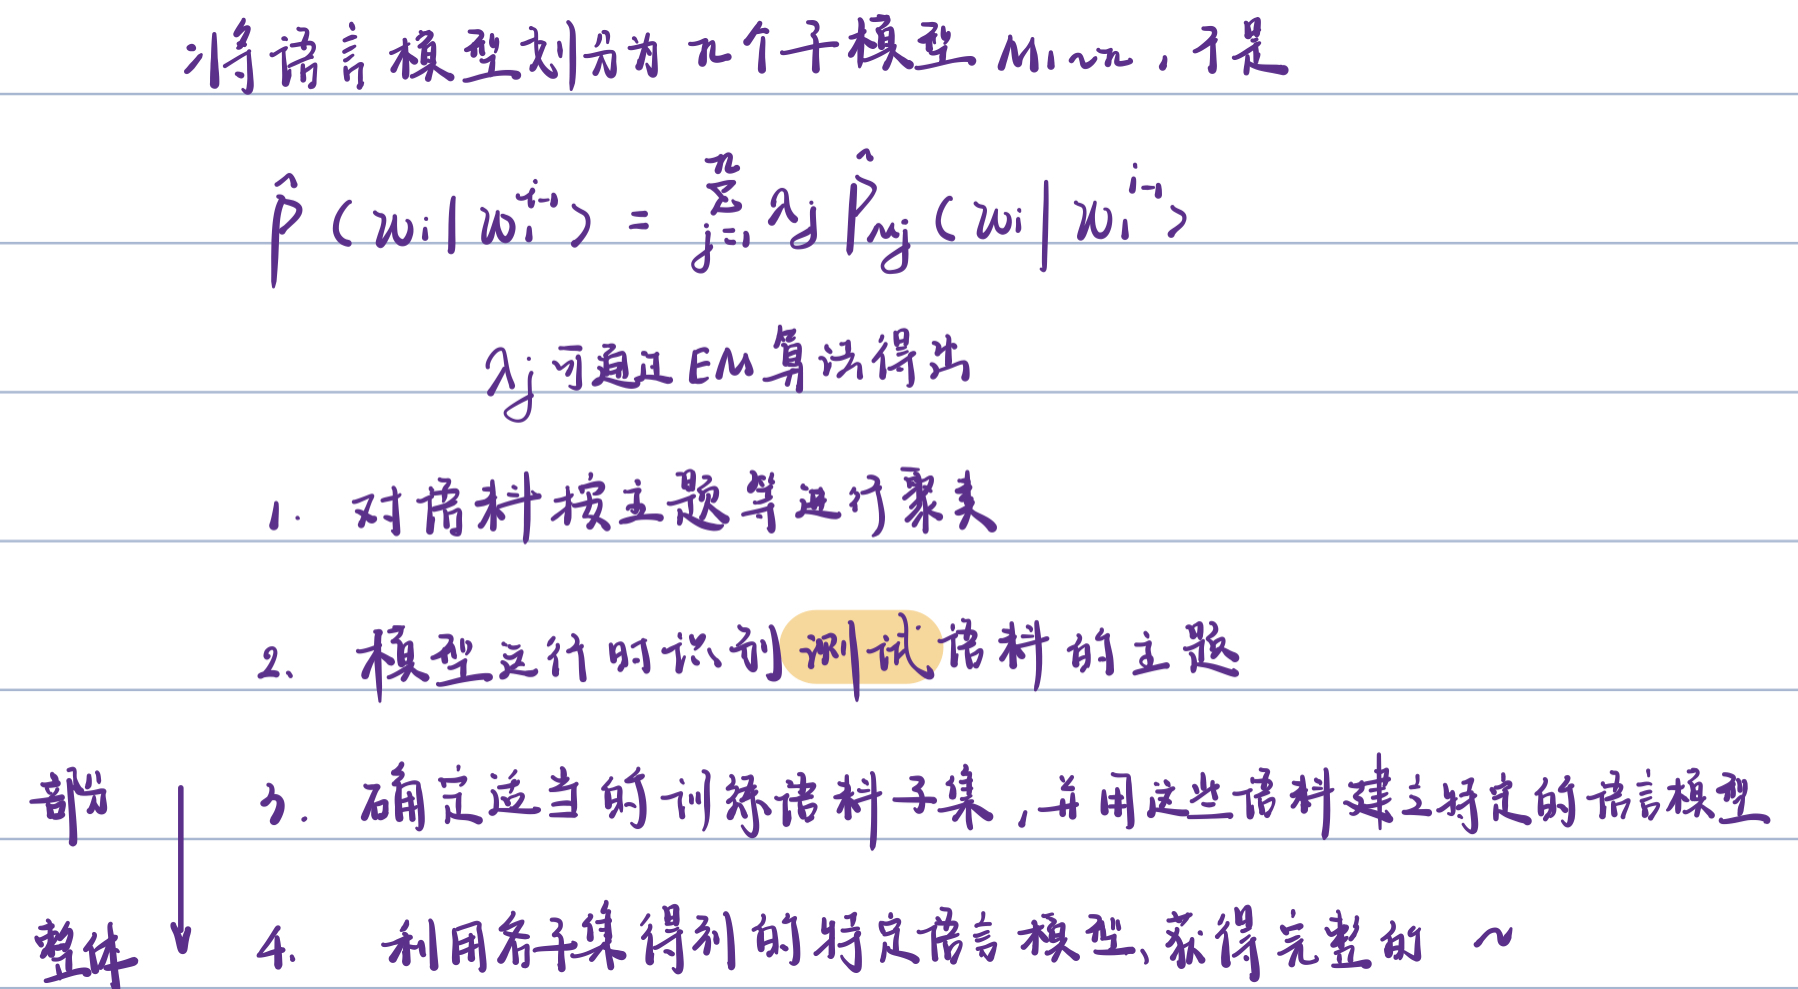 将语言模型划分为 n个子模型 M1~n，于是
P̂ (wi | w1^{i-1}) = ∑_{j=1}^{n} λj P̂_{Mj} (wi | w1^{i-1})
λj 可通过 EM 算法得出
1. 对语料按主题等进行聚类
2. 模型运行时识别测试语料的主题
部分 3. 确定适当的训练语料子集，并用这些语料建立特定的语言模型
整体 4. 利用各子集得到的特定语言模型、获得完整的 ~